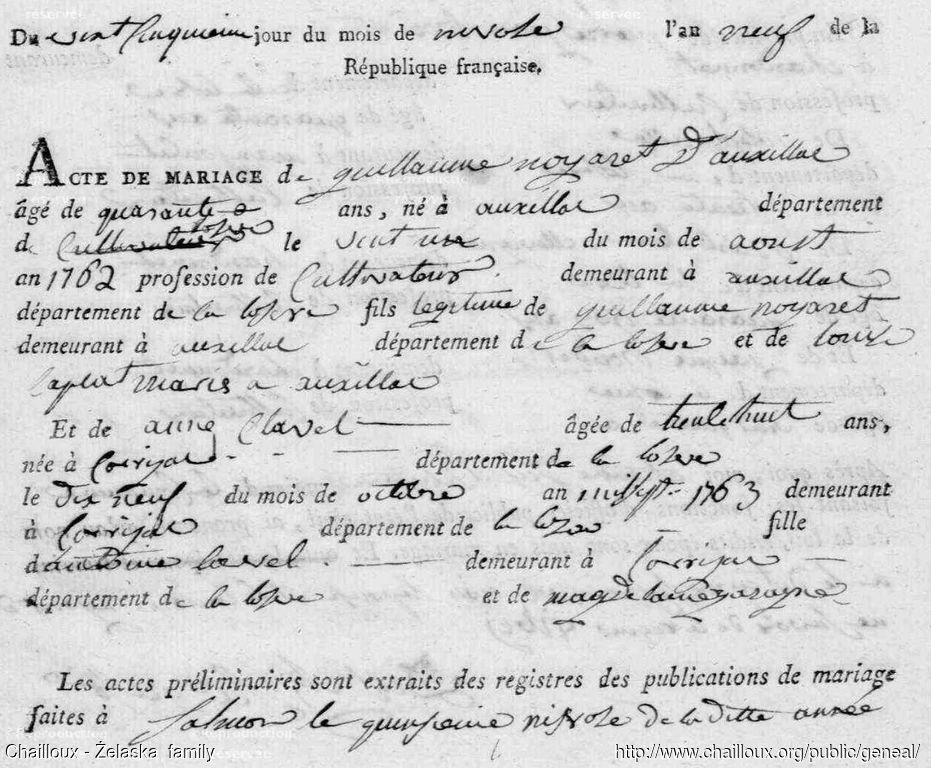 Du vint cinquieme jour du mois de nivose l'an neuf de la
République française.
ACTE DE MARIAGE de guillaume noyaret D'auxillac
âgé de quarante ans, né à auxillac département
de la losere le vint un du mois de aoust
an 1762 profession de Cultivateur demeurant à auxillac
département de la losere fils legitime de guillaume noyaret
demeurant à auxillac département de la losere et de louise
maries a auxillac
Et de anne Clavel âgée de trente huit ans,
née à département de la losere
le dix neuf du mois de octobre an 1763 demeurant
à département de la losere fille
d'antoine clavel demeurant à
département de la losere et de magdelaine
Les actes préliminaires sont extraits des registres des publications de mariage
faites à Salmon le quinsieme nivose de la ditte année
Chailloux - Želaska family http://www.chailloux.org/public/geneal/